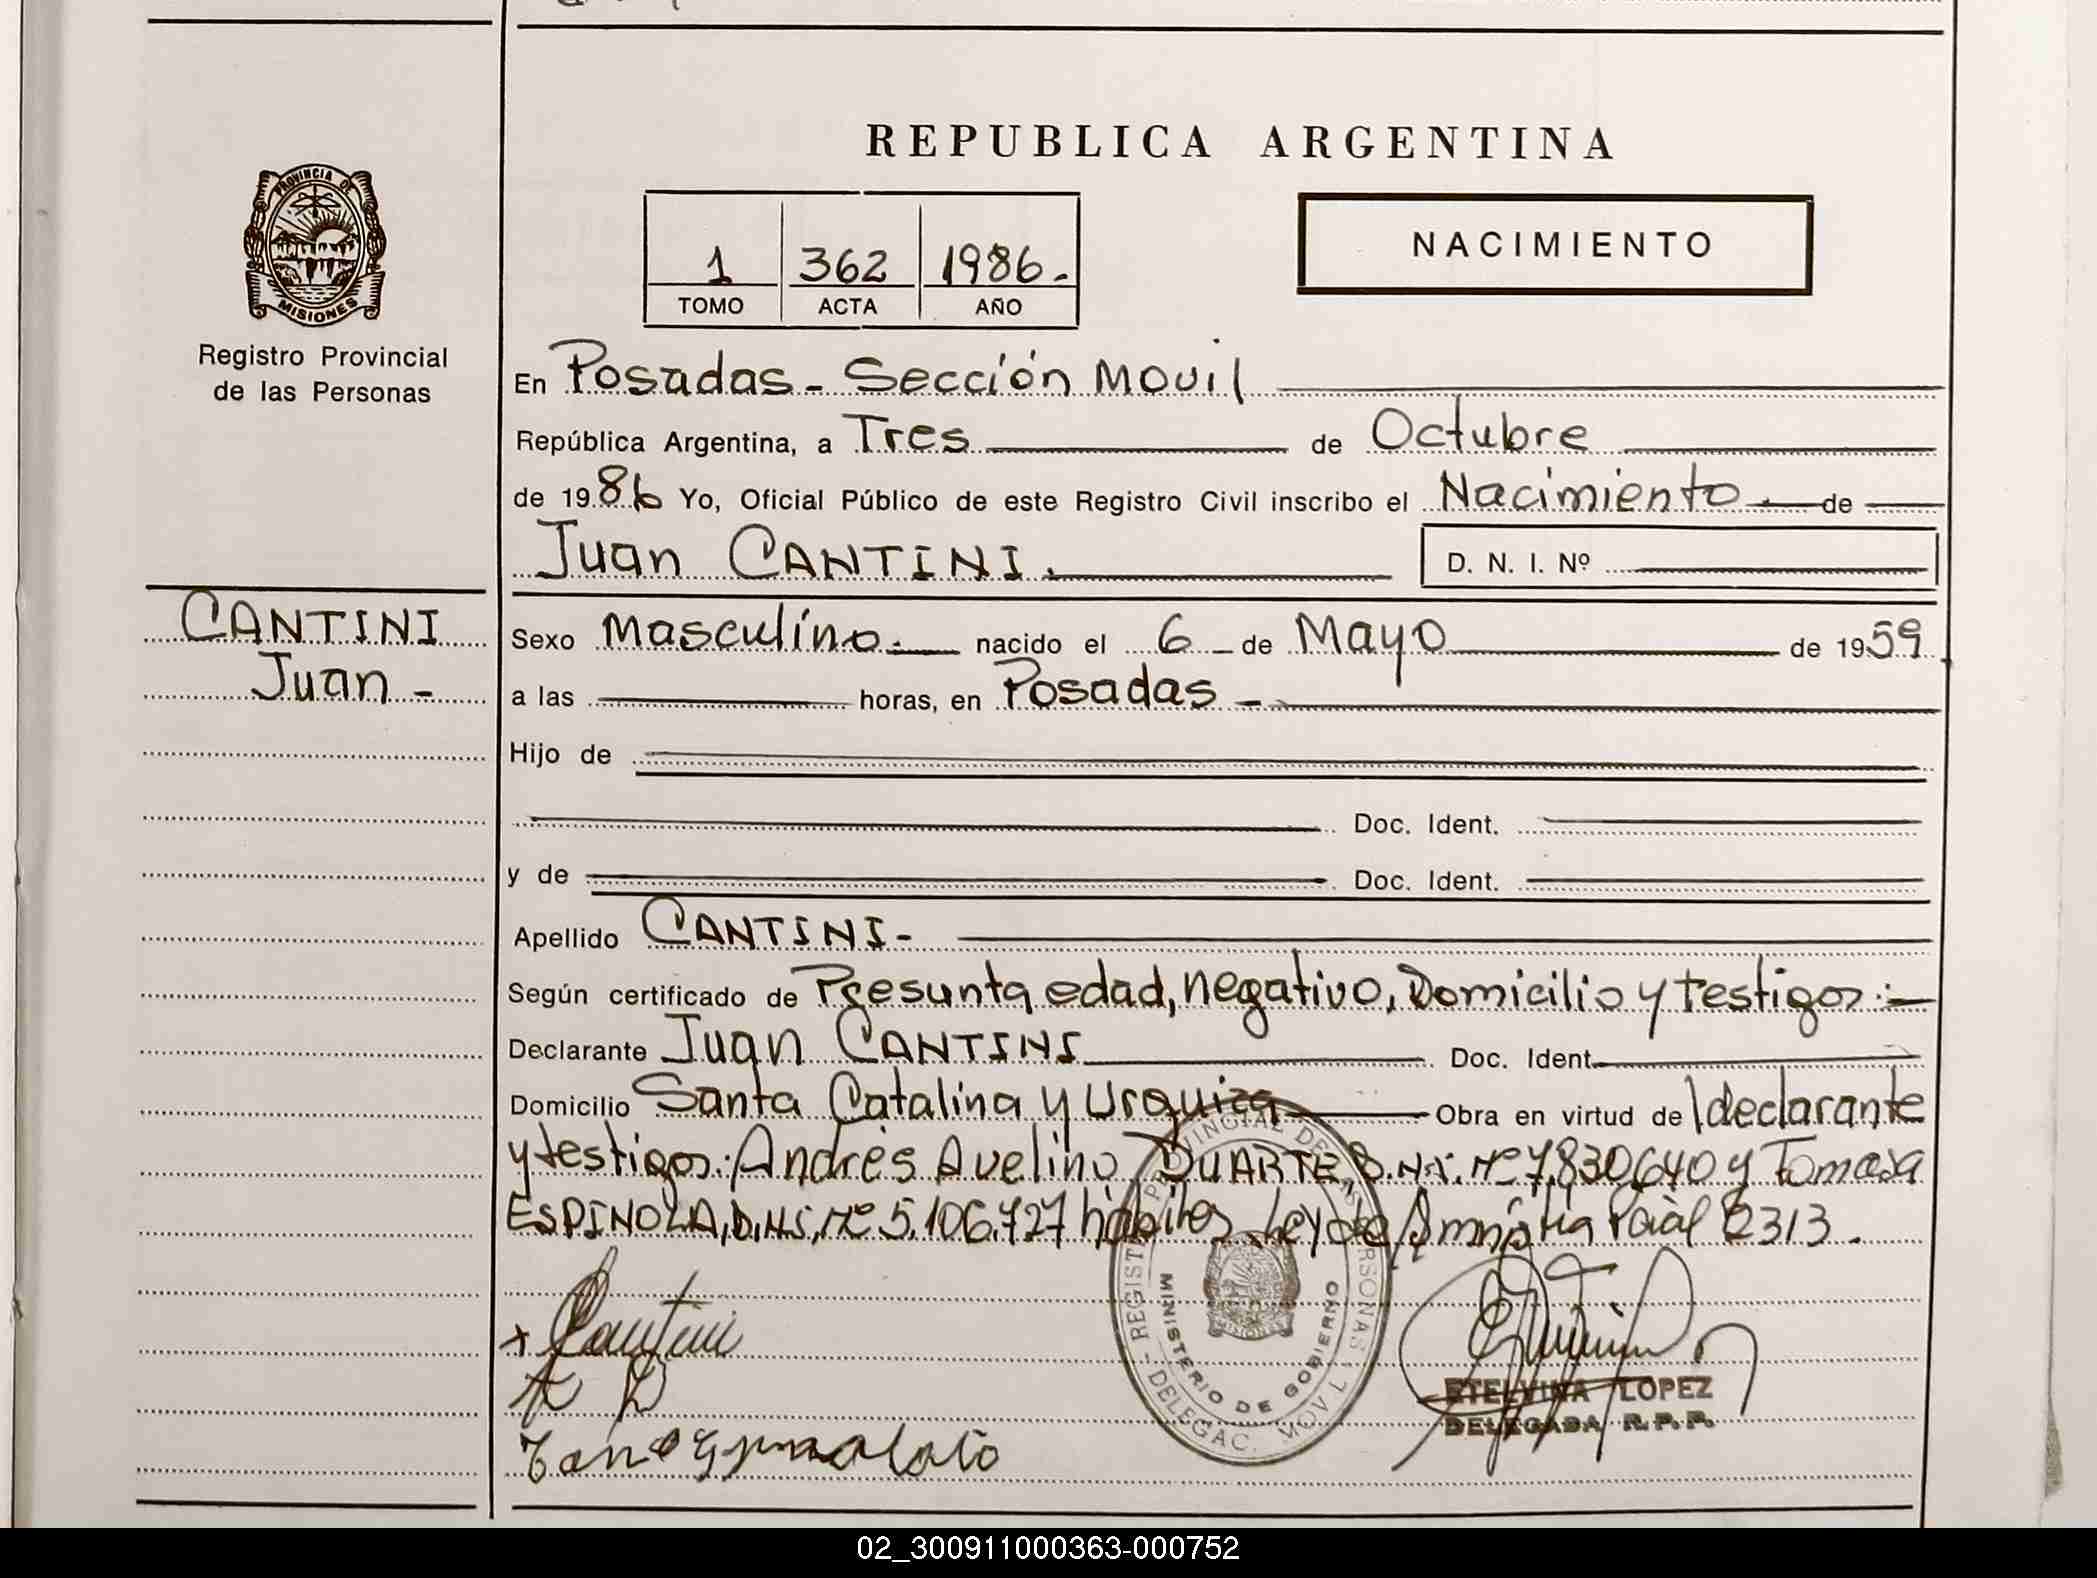 REPUBLICA ARGENTINA
PROVINCIA DE
MISIONES
Registro Provincial
de las Personas
1 362 1986.-
TOMO ACTA AÑO
NACIMIENTO
En Posadas - Sección Movil
República Argentina, a Tres de Octubre
de 1986 Yo, Oficial Público de este Registro Civil inscribo el Nacimiento.- de
Juan CANTINI. D. N. I. Nº
CANTINI
Juan -
Sexo Masculino.- nacido el 6 - de Mayo de 1959
a las horas, en Posadas -
Hijo de
Doc. Ident.
y de Doc. Ident.
Apellido CANTINI -
Según certificado de Presunta edad, negativo, Domicilio y testigos:-
Declarante Juan CANTINI Doc. Ident.
Domicilio Santa Catalina y Urquiza Obra en virtud de declarante
y testigos: Andrés Avelino DUARTE, D.N.I. Nº 7.830.640 y Tomasa
ESPINOLA, D.N.I, Nº 5.106.727 hábiles. Ley de Amnistia Pcial 2313.
+ Cantini
REGIST PROVINCIAL DE PERSONAS
MINISTERIO DE GOBIERNO
- DELEGAC. MOVIL
ETELVINA LOPEZ
DELEGADA R.P.P.
02_300911000363-000752